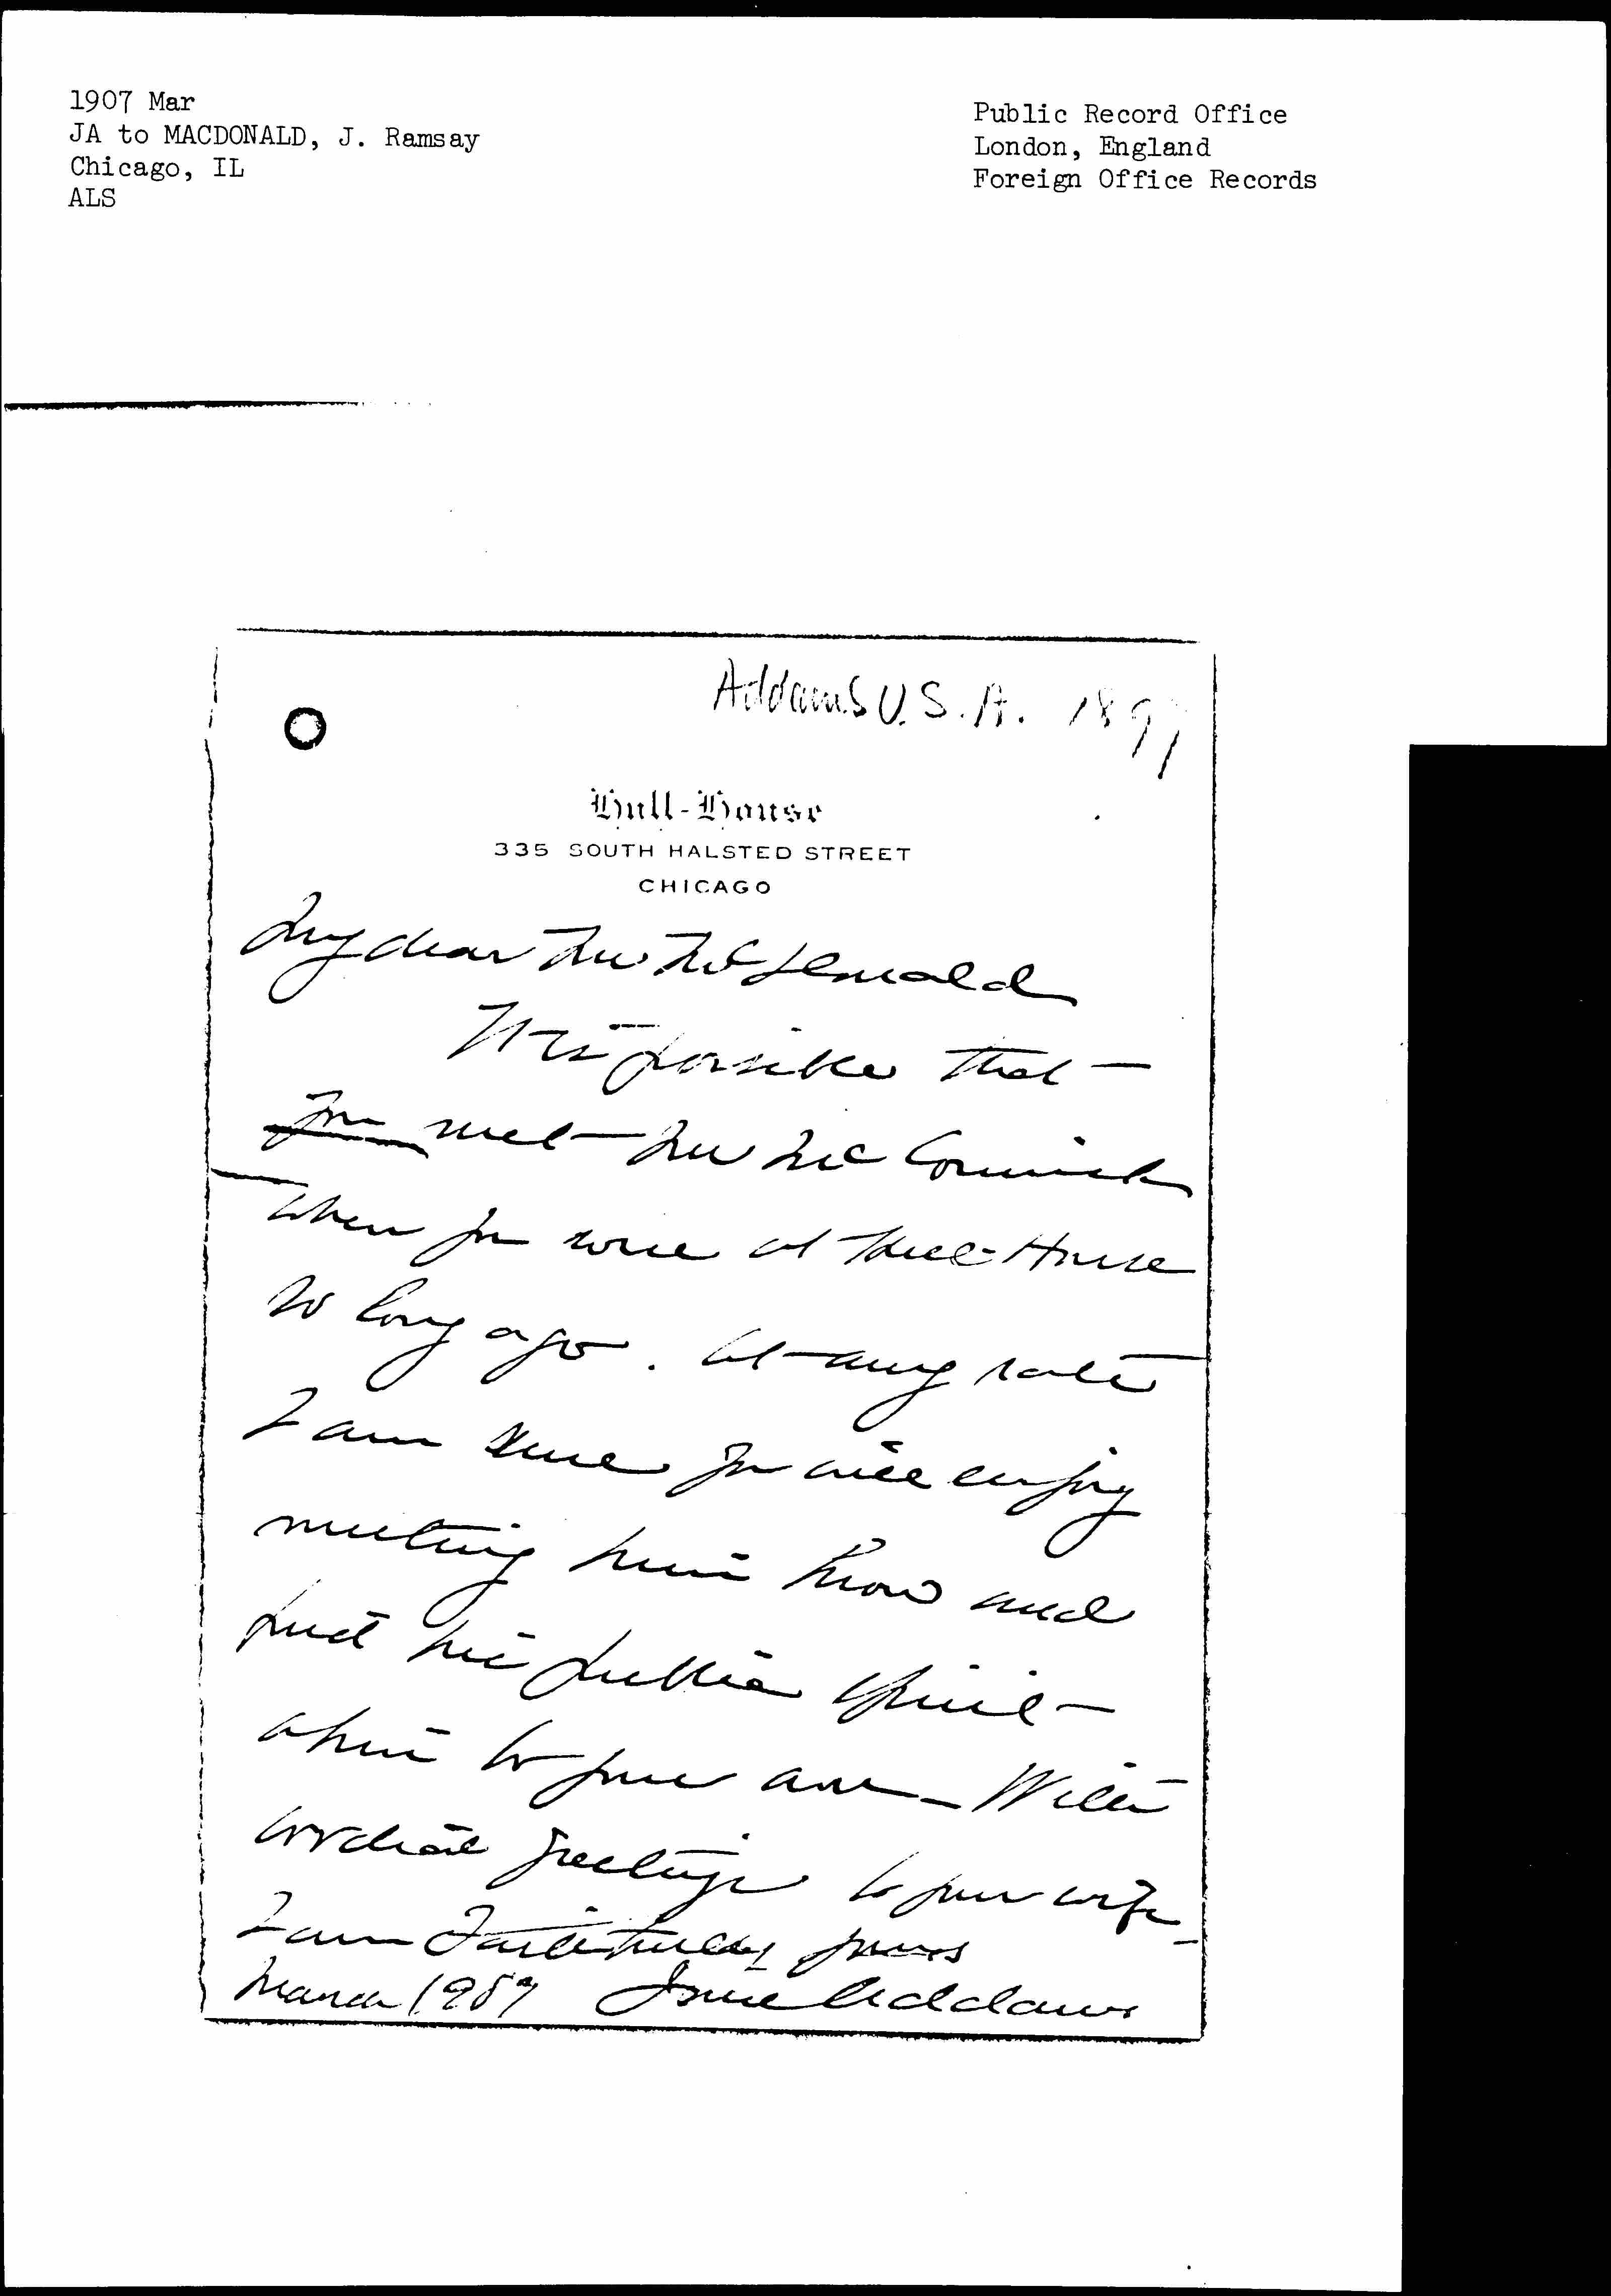 1907 Mar
JA to MACDONALD, J. Ramsay
Chicago, IL
ALS
Public Record Office
London, England
Foreign Office Records
Addams U.S.A. 1897
Hull-House
335 SOUTH HALSTED STREET
CHICAGO
My dear Mr McDonald
It is possible that
you met Mr McCormick
when you were at Hull-House
so long ago. At any rate
I am sure you will enjoy
meeting him now and
find his public spirit
akin to your own – With
cordial greetings to your wife –
I am Faithfully yours
March 1907 Jane Addams